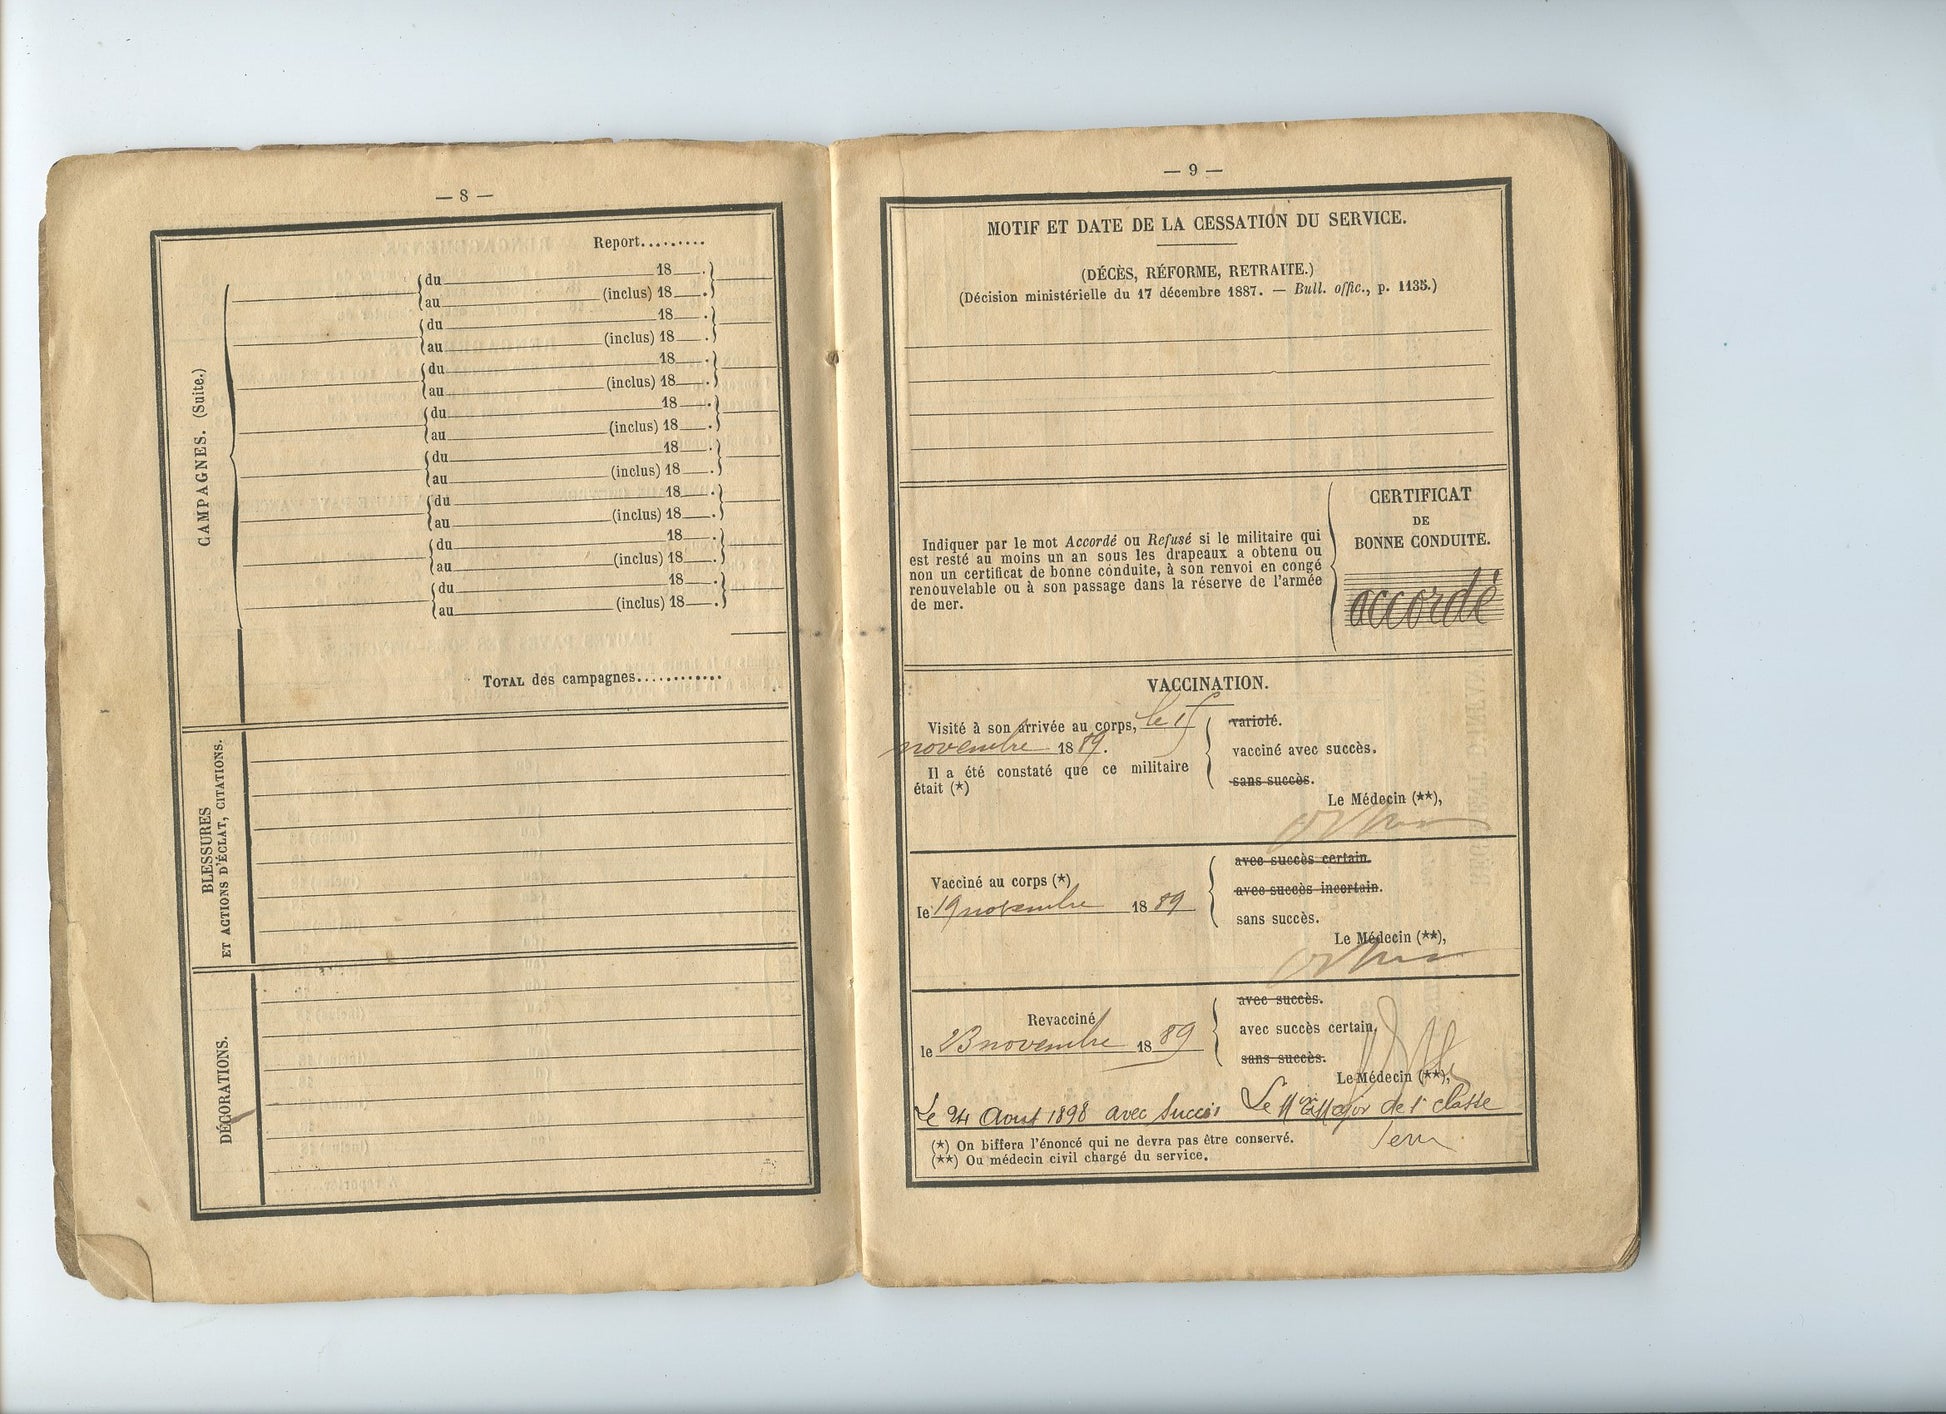 — 8 —
Report.........
CAMPAGNES. (Suite.)
du 18 .
au (inclus) 18 .
du 18 .
au (inclus) 18 .
du 18 .
au (inclus) 18 .
du 18 .
au (inclus) 18 .
du 18 .
au (inclus) 18 .
du 18 .
au (inclus) 18 .
du 18 .
au (inclus) 18 .
du 18 .
au (inclus) 18 .
TOTAL des campagnes............
BLESSURES
ET ACTIONS D'ÉCLAT, CITATIONS.
DÉCORATIONS.
— 9 —
MOTIF ET DATE DE LA CESSATION DU SERVICE.
(DÉCÈS, RÉFORME, RETRAITE.)
(Décision ministérielle du 17 décembre 1887. — Bull. offic., p. 1135.)
Indiquer par le mot Accordé ou Refusé si le militaire qui
est resté au moins un an sous les drapeaux a obtenu ou
non un certificat de bonne conduite, à son renvoi en congé
renouvelable ou à son passage dans la réserve de l'armée
de mer.
CERTIFICAT
DE
BONNE CONDUITE.
accordé
VACCINATION.
Visité à son arrivée au corps, le 15
novembre 1889.
Il a été constaté que ce militaire
était (*)
variolé.
vacciné avec succès.
sans succès.
Le Médecin (**),
Vacciné au corps (*)
le 19 novembre 1889
avec succès certain.
avec succès incertain.
sans succès.
Le Médecin (**),
Revacciné
le 23 novembre 1889
avec succès.
avec succès certain.
sans succès.
Le Médecin (**),
Le 24 Aout 1898 avec Succès Le Major de 1e classe
(*) On biffera l'énoncé qui ne devra pas être conservé.
(**) Ou médecin civil chargé du service.